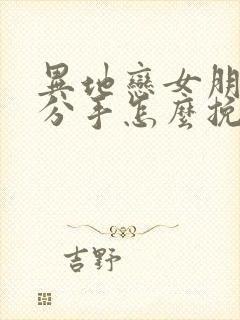 異地戀女朋
分手怎麼挽
吉野